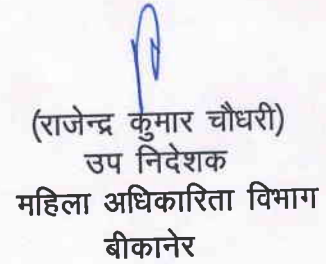 (राजेन्द्र कुमार चौधरी)
उप निदेशक
महिला अधिकारिता विभाग
बीकानेर